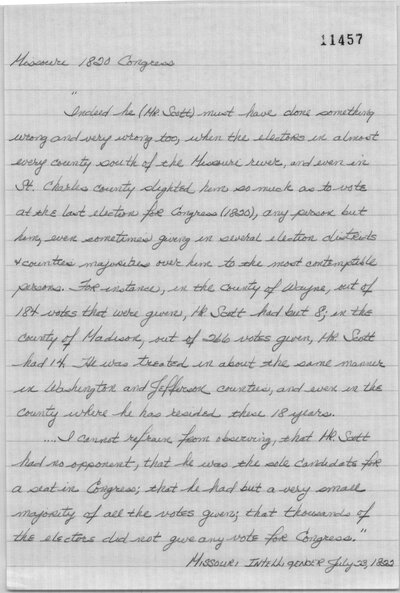 11457
Missouri 1820 Congress
"
Indeed he (Mr. Scott) must have done something
wrong and very wrong too, when the electors in almost
every county south of the Missouri river, and even in
St. Charles county slighted him so much as to vote
at the last election for Congress (1820), any person but
him, even sometimes giving in several election districts
& counties majorities over him to the most contemptible
persons. For instance, in the County of Wayne, out of
184 votes that were given, Mr. Scott had but 8; in the
county of Madison, out of 266 votes given, Mr. Scott
had 14. He was treated in about the same manner
in Washington and Jefferson counties, and even in the
county where he has resided these 18 years.
....I cannot refrain from observing, that Mr. Scott
had no opponent, that he was the sole candidate for
a seat in Congress; that he had but a very small
majority of all the votes given; that thousands of
the electors did not give any vote for Congress."
Missouri Intelligencer July 23, 1822